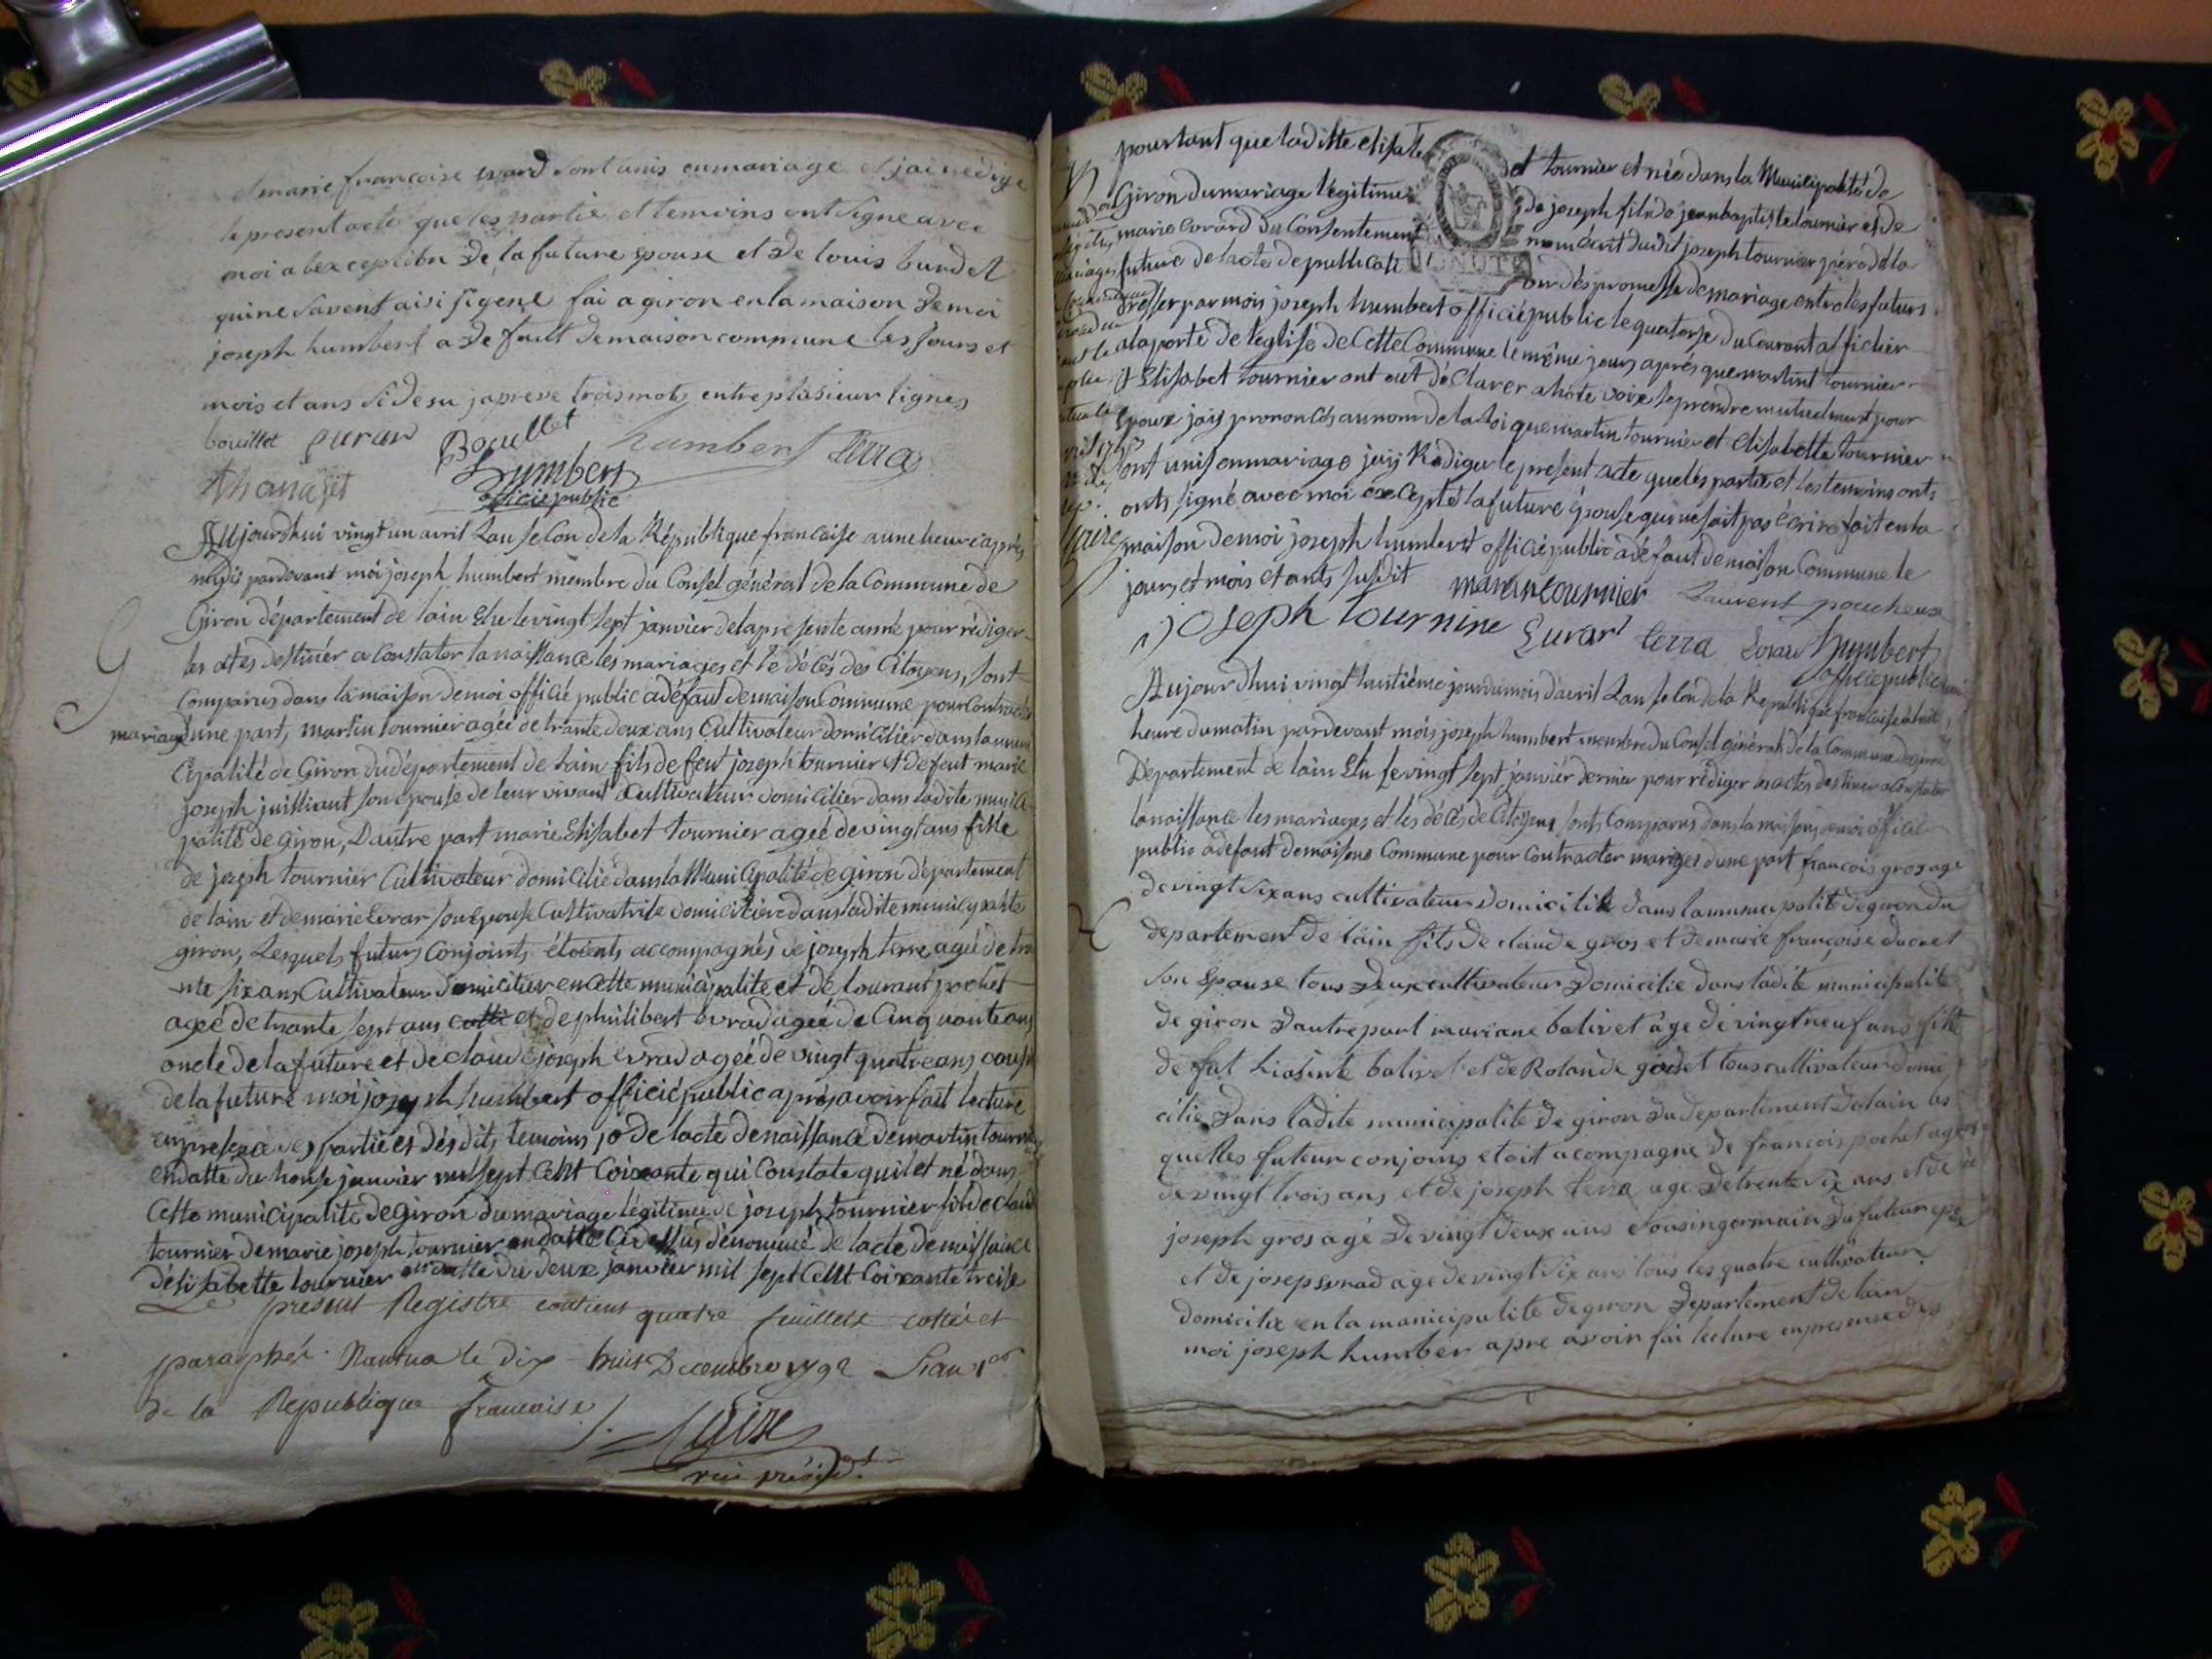 et marie francoise evard sont unis en mariage et jai redige
le present acte que les partie et temoins ont signe avec
moi a lexception de la future epouse et de louis burdet
qui ne savent aisi sigene fai a giron en la maison de moi
joseph humbert a default de maison commune les jours et
mois et ans sidesu japreve trois mots entre plusieur lignes
bouillet evrar Bouillet humbert terra
humbert
officie public
Aujourdhui vingt un avril Lan selon de la République francaise a une heure après
midis pardevant moi joseph humbert membre du Consel général de la Commune de
Giron département de lain Elu le vingt sept janvier de la presente anné pour rédiger
les actes destinér a Constater la naissance les mariages et le décés des Citoyens, sont
Comparus dans la maison de moi officié public a défaut de maison Commune pour Contracter
mariage dune part, martin tournier agée de trante deux ans Cultivateur domicilier dans la muni
cipalité de Giron du département de Lain fils de feu joseph tournier et de feut marie
joseph juilliant son epouse de leur vivant Cultivateur domicilier dans ladite munici
palité de Giron, Dautre part marie Elisabet tournier ageé de vingt ans fille
de joseph tournier Cultivateur domicilié dans la Municipalité de giron département
de lain et de marie Evrar son épouse Cultivatrise domicilière dans ladite municipalite
giron, Lesquels futurs Conjoints étoients accompagnés de joseph terre ageé de tra
nte six ans Cultivateur domicilier en Cette municipalite et de lourant pochet
ageé de trante sept ans et de philibert evrad ageé de Cinquante ans
oncle de la future et de claude joseph evrad ageé de vingt quatre ans, cousin
de la future moi joseph humbert officié public après avoir fait lecture
en presence des partie et désdits temoins 10 de lacte de naissance de martin tournier
en datte du honse janvier mil sept Cent Coixante qui Constate quil et né dans
Cette municipalité de giron du mariage légitime de joseph tournier fils de claude
tournier de marie joseph tournier en datte Cidessus dénommé de lacte de naissance
désisabette tournier en datte du deux janvier mil sept Cent Coixante treise
Le present Registre contient quatre feuillets cottés et
paraphés. Nantua le dix huit Decembre 1792 Lan 1er
de la Republique francaise
vice présidt
pourtant que laditte elisabet tournier et née dans la Municipalité de
Giron du mariage légitime de joseph fils de jean baptiste tournier et de
marie Evrard du Consentement dudit joseph tournier père de la
future de lacte de publication dés promesse de mariage entre lés futurs
dresser par mois joseph humbert officié public le quatorse du Courant afficher
a la porte de léglise de Cette Commune le même jours aprés que martint tournier
et Elisabet tournier ont eut déClarer a hote voix se prendre mutuelment pour
epoux jaij prononcés au nom de la Loi que martin tournier et Elisabette tournier
sont unis en mariage jaij Rédiger le present acte que lés partie et lés temoins onts
onts signé avec moi excépté la future épouse qui ne sait pas Ecrire fait en la
maison de moi joseph humbert officié public a défaut de maison Commune le
jours et mois et ants susdit martin tournier Laurent poucheux
joseph tournine Evrart terra Evrar humbert
officié public
Aujourdhui vingt huitiéme jour du mois davril Lan selon de la Republique francaise a huit
heure du matin pardevant mois joseph humbert membre du Consel général de la Commune de giron
Département de lain Elu le vingt sept janvier dernier pour rédiger les actes destiner a Constater
la naissance les mariages et lés décés de Citoyens sont Comparus dans la maison de moi officié
public a defaut de maisons Commune pour Contracter mariages dune part francois gros age
de vingt six ans cultivateur domicilié dans la municipalité de giron du
departement de lain fils de claude gros et de marie françoise ducret
son epouse tous deux cultivateur domicilie dans ladite municipalite
de giron dautre part mariane balivet age de vingt neuf ans fille
de fut hiasinte balivet et de Rolande goiset tous cultivateur domi
cilie dans ladite municipalite de giron du departement de lain les
quelles futeur conjoins etoit acompagne de francois pochet age
de vingt trois ans et de joseph terra age de trente six ans et de
joseph gros agé de vingt deux ans cousin germain du futeur epoux
et de josep evrad age de vingt six ans tous les quatre cultivateur
domicilie en la municipalite de giron departement de lain
moi joseph humber apre avoir fai lecture en presense des